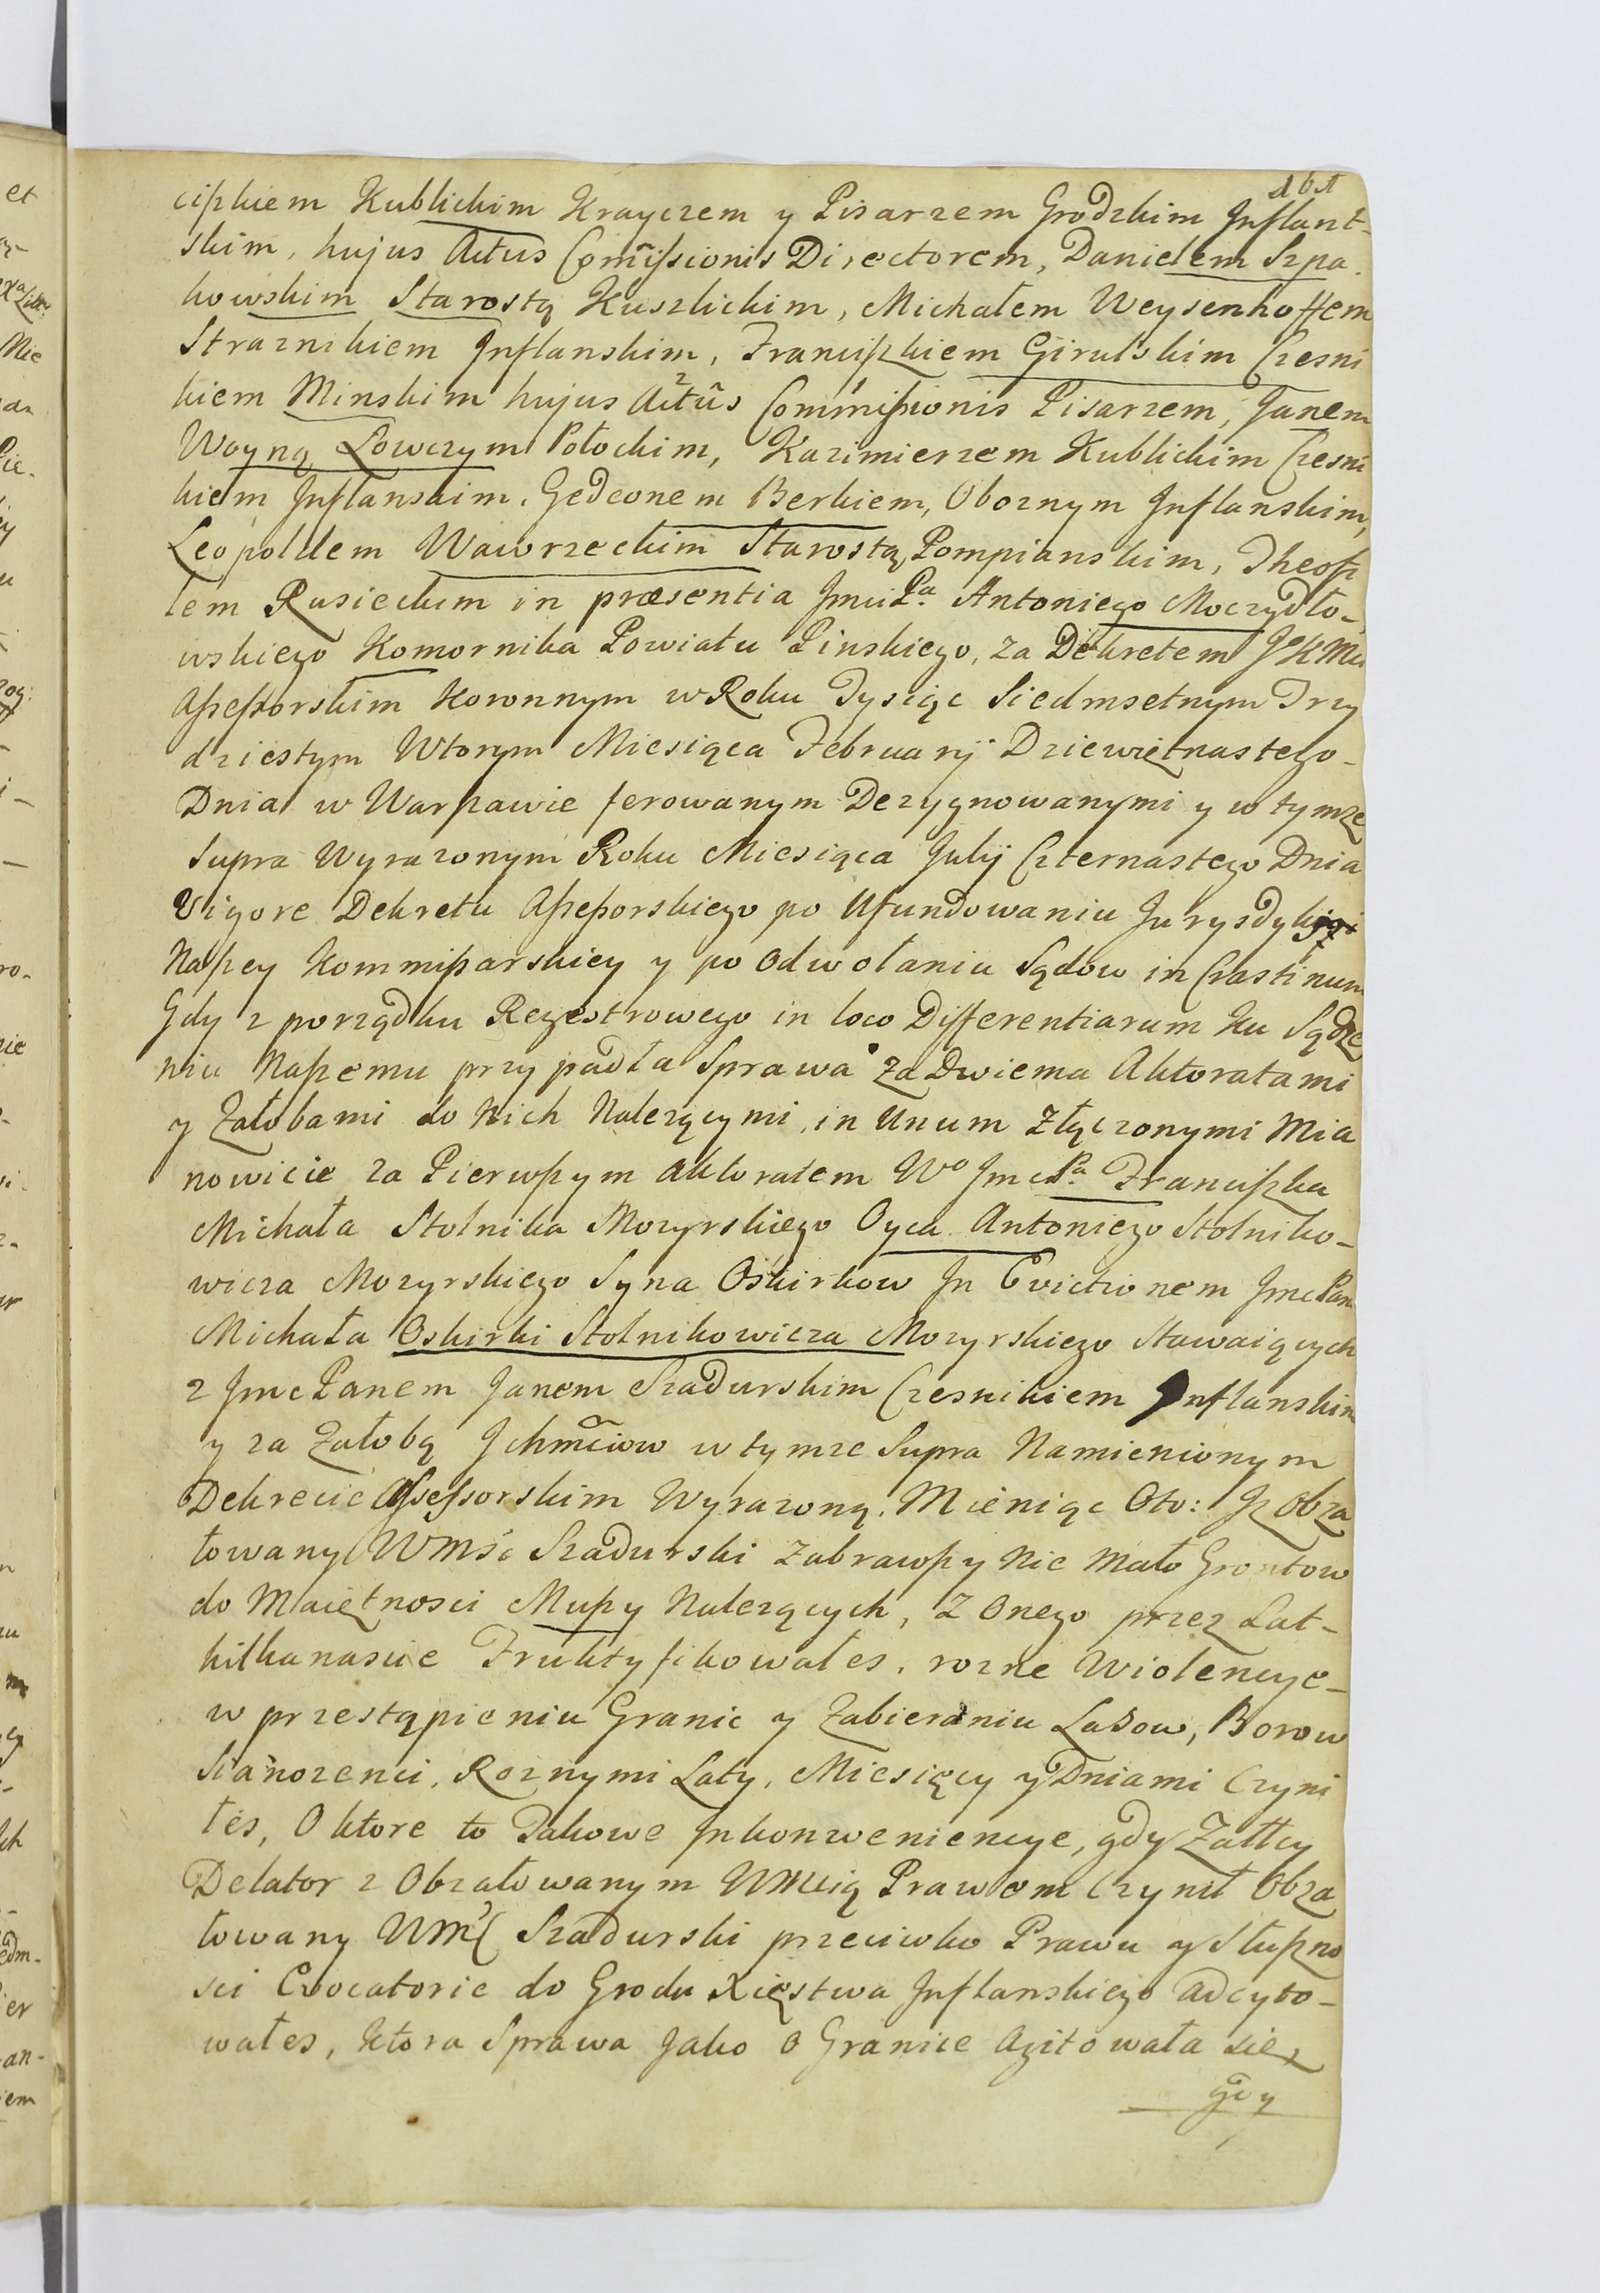 ciszkiem Kublickim Krayczem y Pisarzem Grodzkim Inflant-
skim, hujus Actus Com̃issionis Directorem, Danielem Szpa
kowskim Starostą Kuszlickim, Michałem Weysenhoffem
Straznikiem Inflanskim, Franciszkiem Girulskim Czesni
kiem Minskim hujus Actũs Commissionis Pisarzem, Janem
Woyną Łowczym Połockim, Kazimierzem Kublickim Czesni
kiem Inflanskim, Gedeonem Berkiem, Oboznym Inflanskim,
Leopoldem Wawrzeckim Starostą Pompianskim, Theofi
lem Rusieckim in præsentia Jmci Pa Antoniego Moczydło-
wskiego Komornika Powiatu Pinskiego, za Dekretem JoKMci
Assessorskim Koronnym w Roku Tysiąc Siedmsetnym Trzy
dziestym Wtorym Miesiąca Februarÿ Dziewiętnastego
Dnia w Warszawie ferowanym Dezygnowanymi y w tymze
Supra Wyrazonym Roku Miesiąca Julÿ Czternastego Dnia
Vigore Dekretu Assessorskiego po Ufundowaniu Jurysdykcyi
Naszey Kommissarskiey y po Odwołaniu Sądow in Crastinum
Gdy z porządku Regestrowego in loco Differentiarum ku Sądze
niu Naszemu przypadła Sprawa za Dwiema Aktoratami
y Załobami do Nich Nalezącymi, in Unum Złączonymi Mia
nowicie za Pierwszym aktoratem Wo Jmc Pa Franciszka
Michała Stolnika Mozyrskiego Oyca Antoniego Stolniko-
wicza Mozyrskiego Syna Oskirkow In Evictionem Jmc Pan
Michała Oskirki Stolnikowicza Mozyrskiego Stawaiących
z Jmc Panem Janem Szadurskim Czesnikiem Inflanskim
y za Załobą Ichm̃ciow w tymze Supra Namienionym
Dekrecie Assessorskim Wyrazoną. Mieniąc Oto: Iz Obza
łowany WMsc Szadurski Zabrawszy Nie Mało Grontow
do Maiętnosci Muszy Nalezących, z Onego przez Lat
kilkanascie Fruktyfikowałes, rozne Wiolencye
w przestąpieniu Granic y Zabieraniu Lasow, Borow
Sianozenci, Roznymi Laty, Miesięcy y Dniami Czyni
łes, O ktore to Takowe Inkonweniencye, gdy Załłcy
Delator z Obzałowanym WMcią Prawem Czynił Obza
łowany WMc Szadurski przeciwko Prawu y Słuszno
sci Evocatorie do Grodu Xięstwa Inflanskiego adcyto-
wałes, ktora Sprawa Jako o Granice Agitowała się
gdy